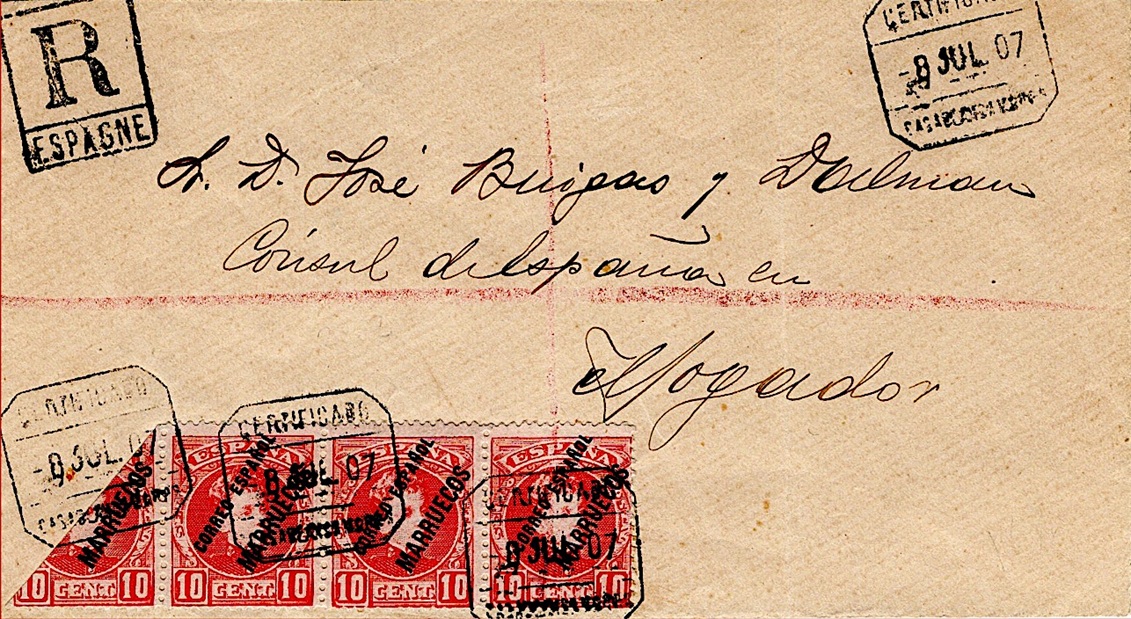 R
ESPAGNE
CERTIFICADO
-8 JUL. 07
A. D. José Buigas y Dalmau
Cónsul de españa en
Mogador
CERTIFICADO
-8 JUL. 07
CERTIFICADO
-8 JUL. 07
CERTIFICADO
8 JUL 07
MARRUECOS
10 CENT. 10
ESPAÑA
CORREO ESPAÑOL
MARRUECOS
10 CENT. 10
ESPAÑA
CORREO ESPAÑOL
MARRUECOS
10 CENT. 10
ESPAÑA
CORREO ESPAÑOL
MARRUECOS
10 CENT. 10